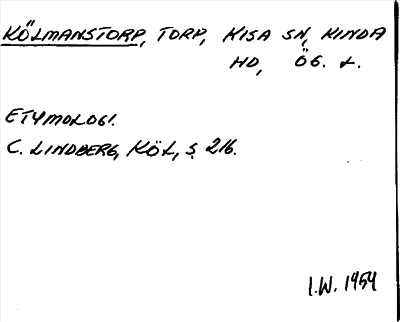 KÖLMANSTORP, TORP, KISA SN, KINDA
HD, ÖG. L.
ETYMOLOGI.
C. LINDBERG, KÖL, S. 216.
I.W. 1959